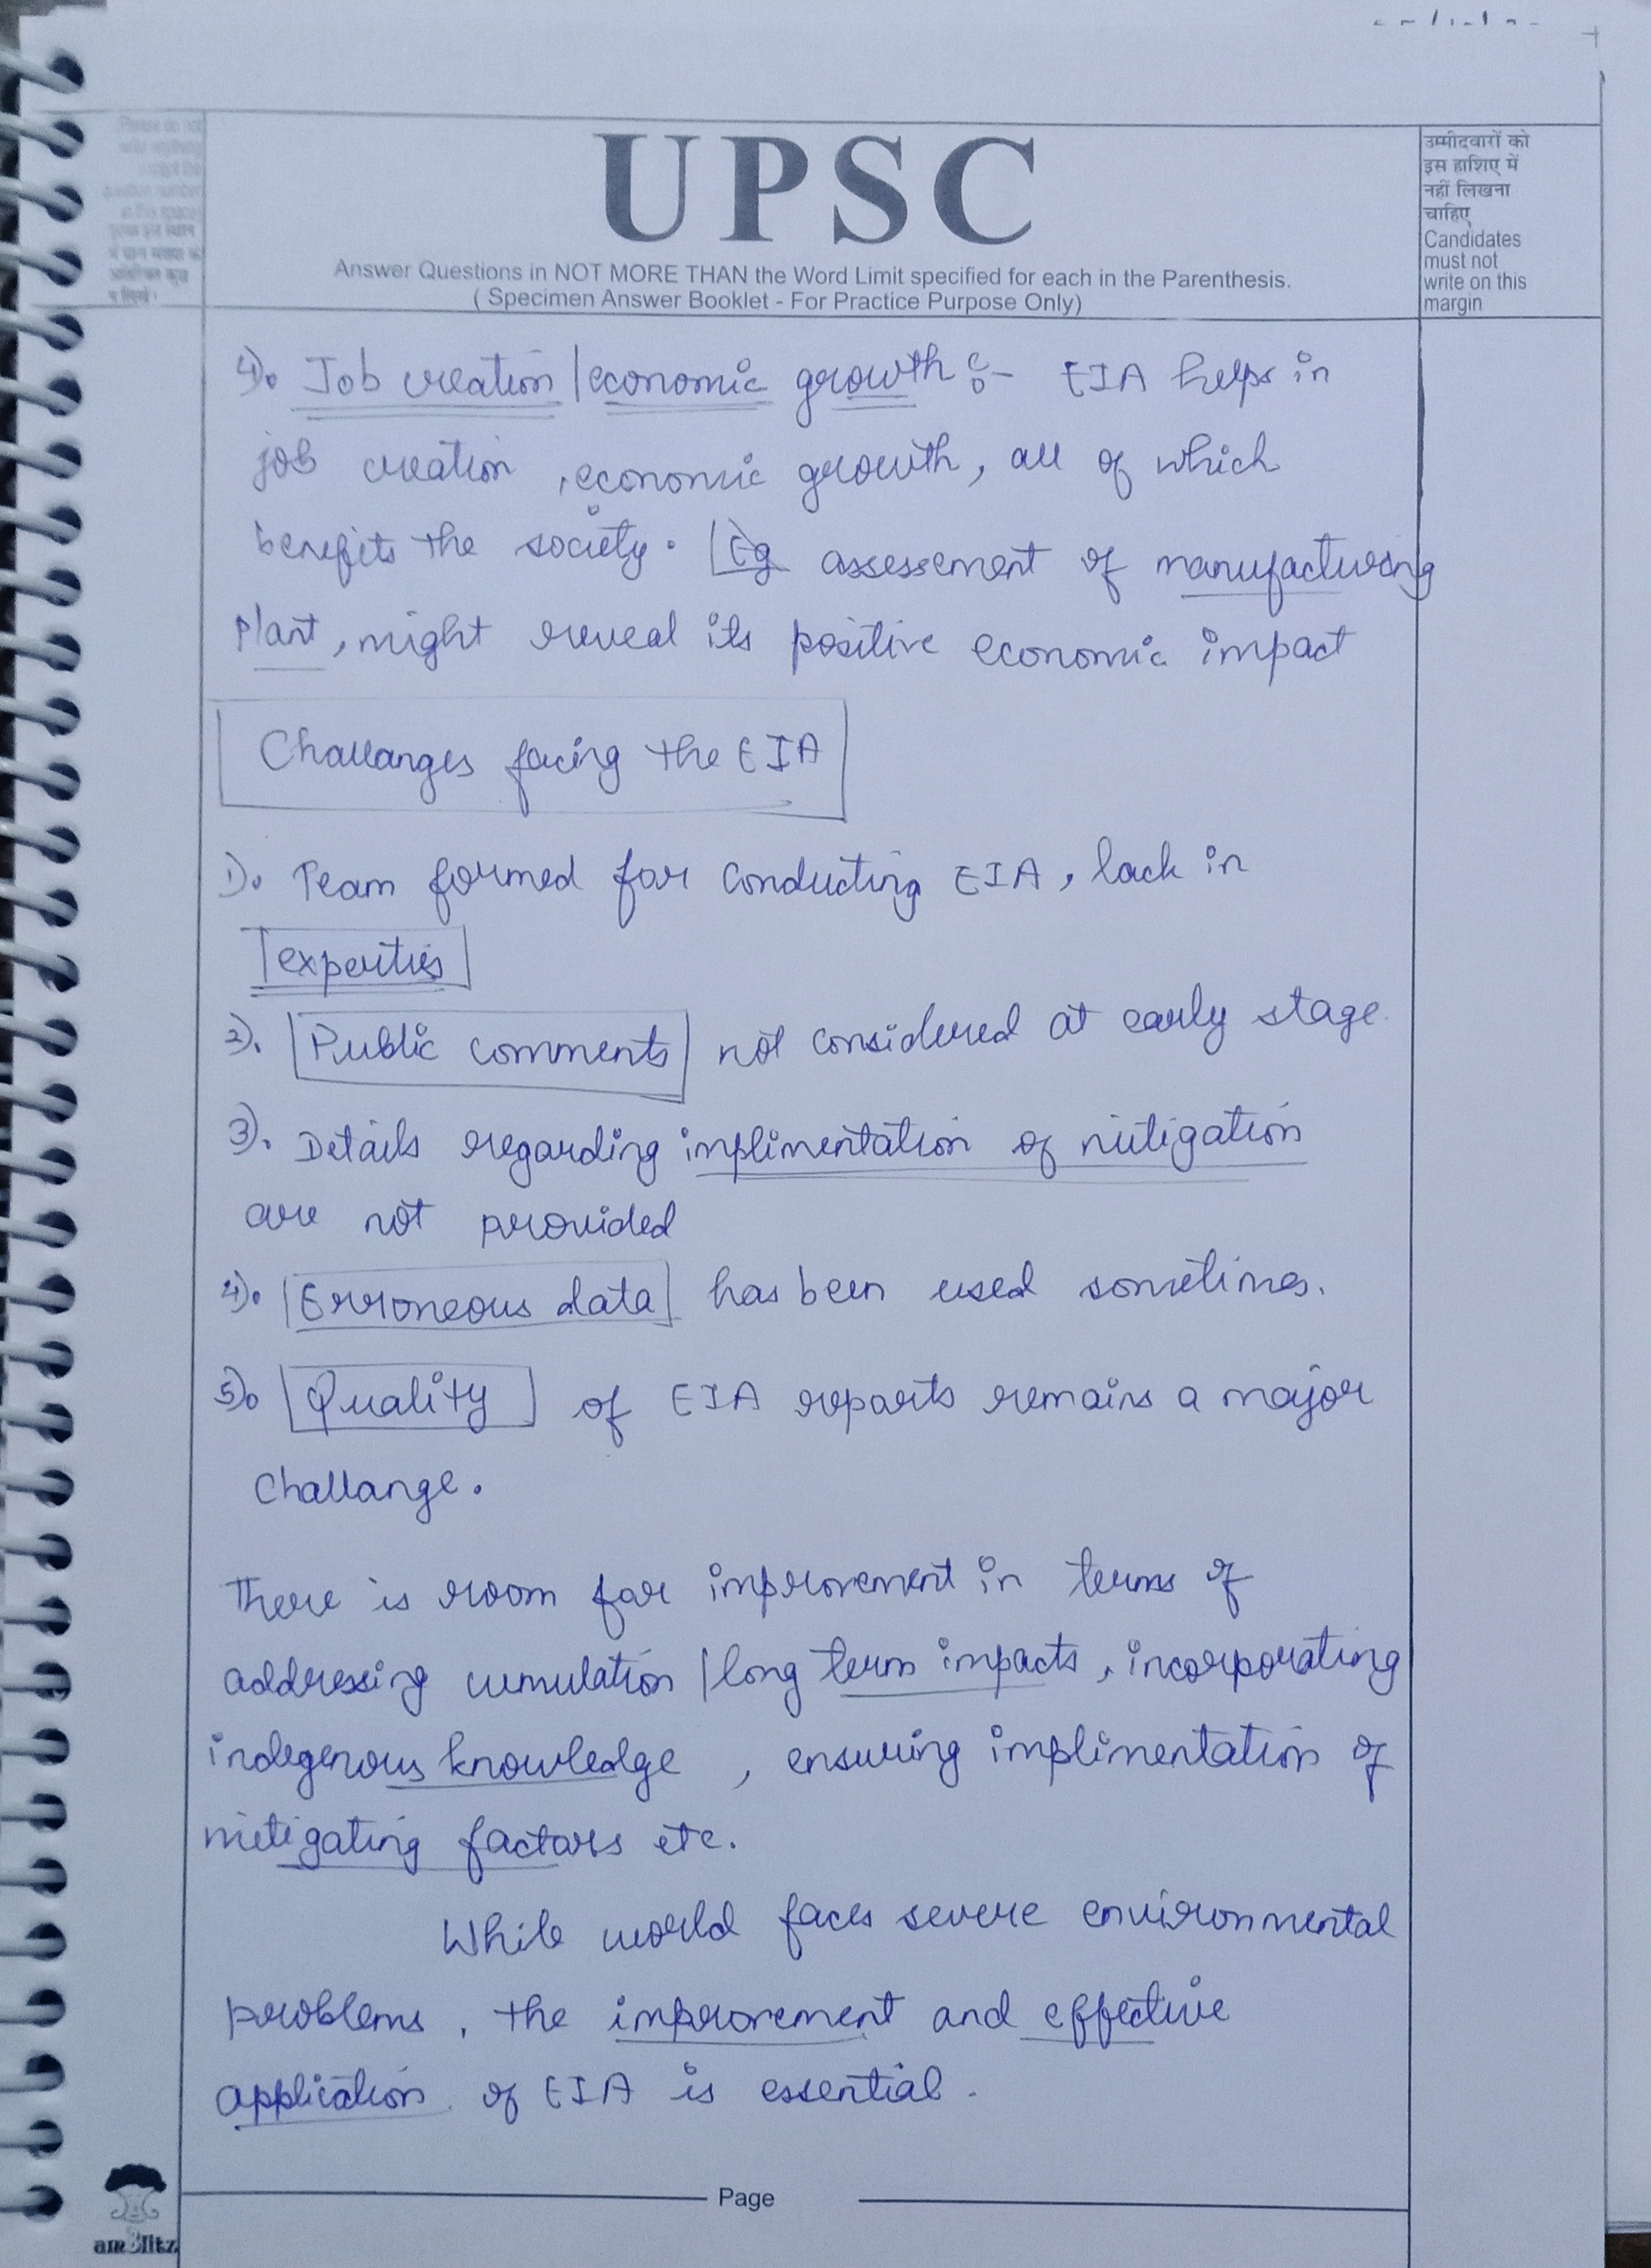 UPSC
Answer Questions in NOT MORE THAN the Word Limit specified for each in the Parenthesis.
( Specimen Answer Booklet - For Practice Purpose Only)
उम्मीदवारों को
इस हाशिए में
नहीं लिखना
चाहिए
Candidates
must not
write on this
margin
4). Job creation / economic growth :- EIA helps in
job creation, economic growth, all of which
benefits the society. Eg assessement of manufacturing
Plant, might reveal its positive economic impact
Challanges facing the EIA
1). Team formed for conducting EIA, lack in
experties
2). Public comments not considered at early stage.
3). Details regarding implimentation of mitigation
are not provided
4). Erroneous data has been used sometimes.
5). Quality of EIA reports remains a major
challange.
There is room for improvement in terms of
addressing cumulation / long term impacts, incorporating
indegenous knowledge, ensuring implimentation of
mitigating factors etc.
While world faces severe environmental
problems, the improvement and effective
application of EIA is essential.
Page